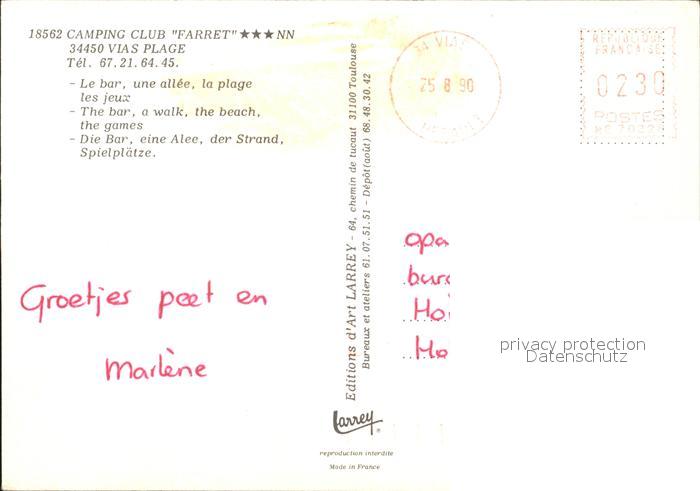 18562 CAMPING CLUB "FARRET" ★★★ NN
34450 VIAS PLAGE
Tél. 67.21.64.45.
- Le bar, une allée, la plage
les jeux
- The bar, a walk, the beach,
the games
- Die Bar, eine Alee, der Strand,
Spielplätze.
Groetjes peet en
Marlène
Editions d'Art LARREY - 64, chemin de tucaut 31100 Toulouse
Bureaux et ateliers 61.07.51.51 - Dépôt (août) 68.48.30.42
Larrey
reproduction interdite
Made in France
34 VIAS
25 8 90
HERAULT
REPUBLIQUE
FRANCAISE
0230
POSTES
opa
Ho
privacy protection
Datenschutz